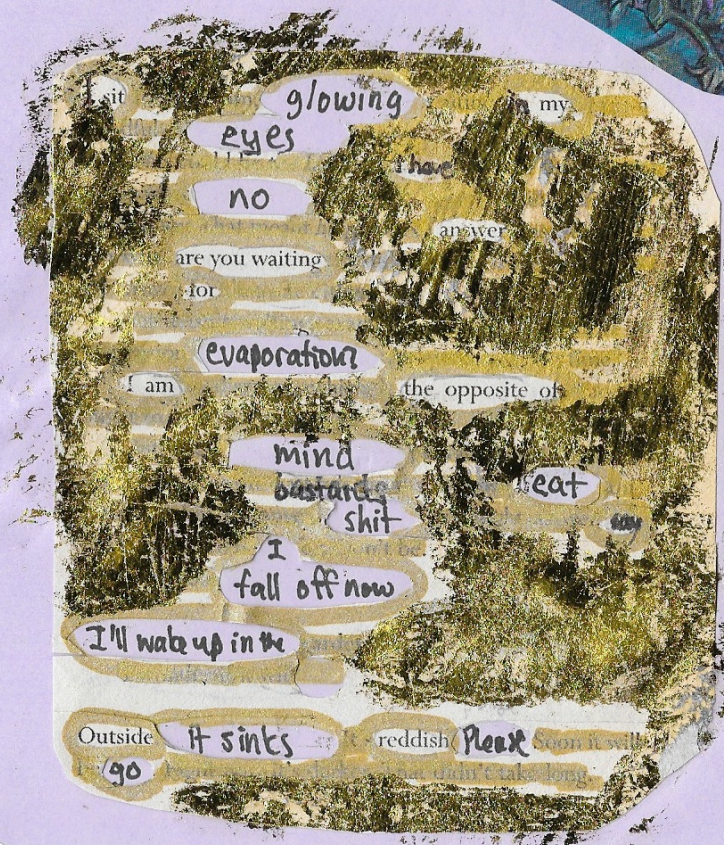 sit glowing in my
eyes
I have
no
answer
are you waiting
for
evaporation
I am the opposite of
mind
bastards eat
shit say
I
fall off now
I'll wake up in the
Outside It sinks reddish Please Soon it will
go that didn't take long.